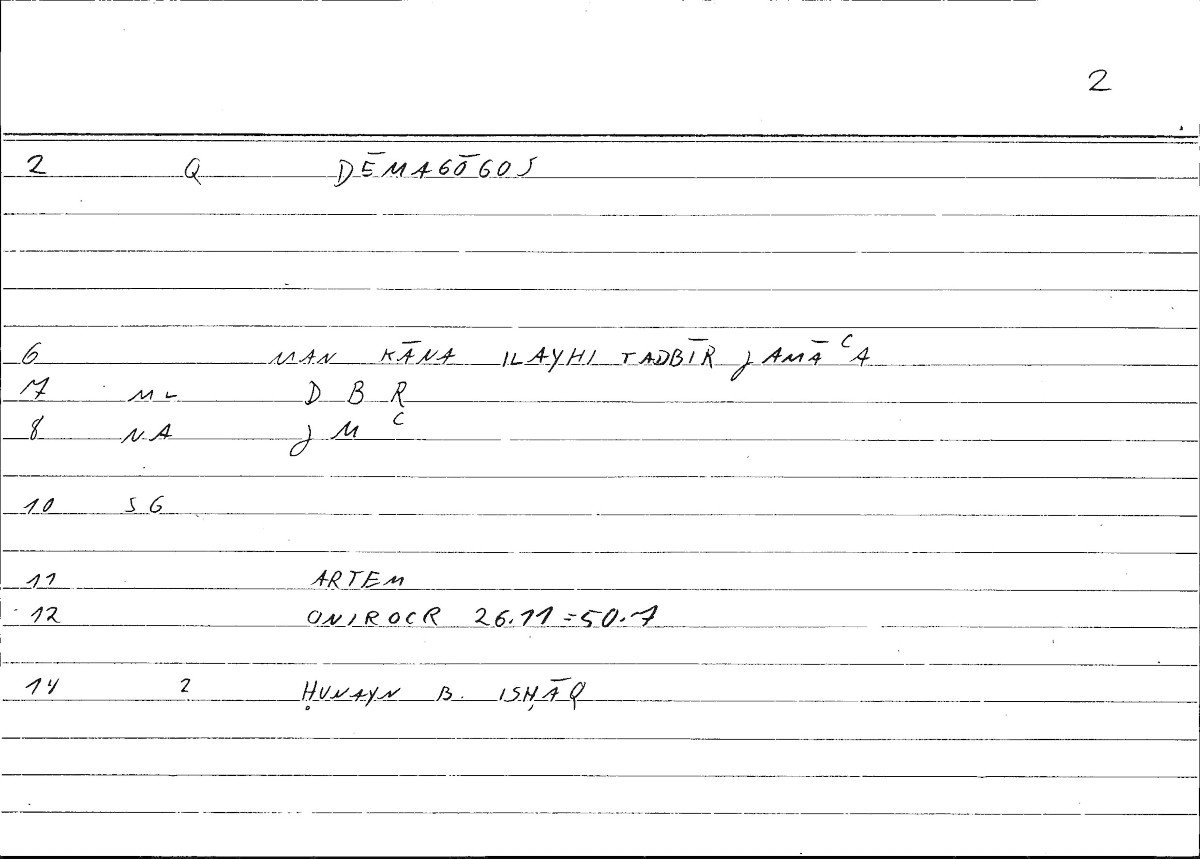 2
2 Q DĒMAGŌGOS
6 MAN KĀNA ILAYHI TADBĪR JAMĀʿA
7 ML D B R
8 NA J M ʿ
10 SG
11 ARTEM
12 ONIROCR 26.11=50.7
14 2 ḤUNAYN B. ISḤĀQ